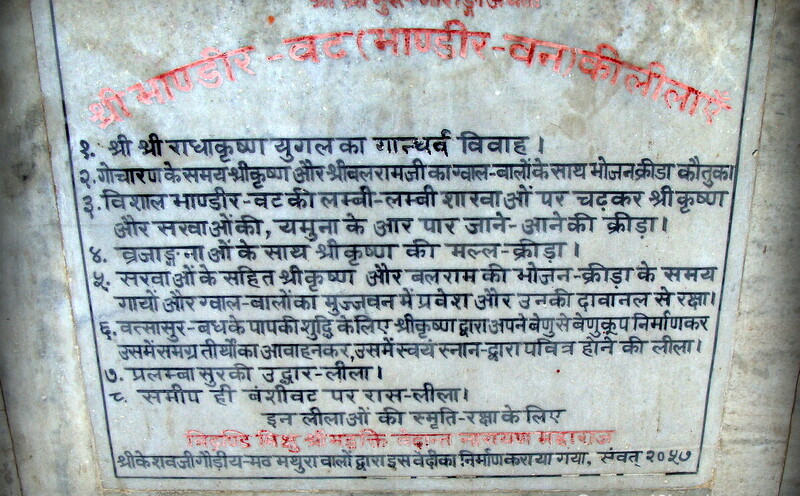 श्री भाण्डीर - वट (भाण्डीर-वन) की लीलाएँ
१. श्री श्री राधाकृष्ण युगल का गान्धर्व विवाह।
२. गोचारण के समय श्रीकृष्ण और श्रीबलरामजी का ग्वाल-बालों के साथ भोजन क्रीडा कौतुक।
३. विशाल भाण्डीर-वट की लम्बी-लम्बी शाखाओं पर चढ़कर श्रीकृष्ण
और सखाओंकी, यमुना के आर पार जाने-आनेकी क्रीड़ा।
४. व्रजाङ्गनाओं के साथ श्रीकृष्ण की मल्ल-क्रीड़ा।
५. सखाओं के सहित श्रीकृष्ण और बलराम की भोजन-क्रीड़ा के समय
गायों और ग्वाल-बालोंका मुञ्जवन में प्रवेश और उनकी दावानल से रक्षा।
६. वत्सासुर-बधके पापकी शुद्धि के लिए श्रीकृष्ण द्वारा अपने वेणुसे वेणुकूप निर्माणकर
उसमें समग्र तीर्थों का आवाहनकर, उसमें स्वयं स्नान-द्वारा पवित्र होने की लीला।
७. प्रलम्बासुरकी उद्धार-लीला।
८. समीप ही बंशीवट पर रास-लीला।
इन लीलाओं की स्मृति-रक्षा के लिए
त्रिदण्डि भिक्षु श्रीमद्भक्ति वेदान्त नारायण महाराज
श्रीकेशवजी गौड़ीय-मठ मथुरा वालों द्वारा इस वेदीका निर्माण कराया गया, संवत् २०५७